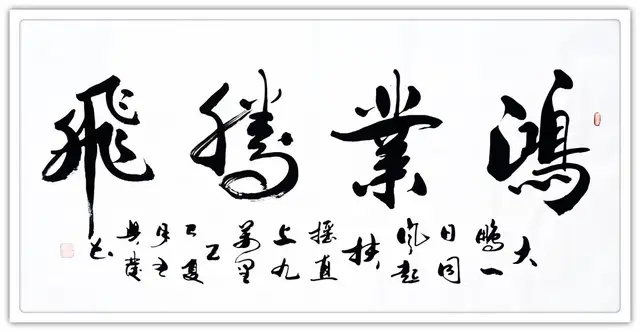 鴻業騰飛
大
鵬一
日同
風起
扶
搖直
上九
萬里
乙
巳夏
月
书